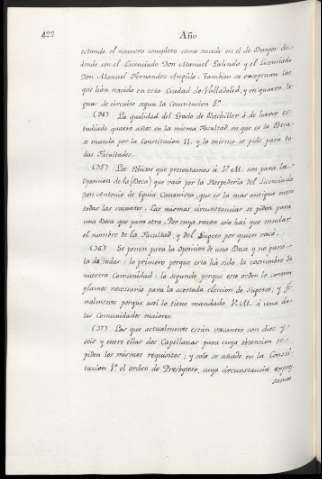 422 Año
estando el numero completo como sucede en el de Burgos de-
donde son el Licenciado Don Manuel Salcedo y el Licenciado
Don Manuel Fernandez Tambien se exceptuan los
que han nacido en esta Ciudad de Valladolid, y en quatro le-
guas de circuito segun la Constitucion
(34) La qualidad del Grado de Bachiller ó de haver es-
tudiado quatro años en la misma Facultad en que es la Beca
se manda por la Constitucion 11. y lo mismo se pide para to-
das Facultades.
(35) Los Edictos que presentamos á V. M. son para la
Oposicion de la (Beca) que vacó por la Porpederia del Licenciado
Don Antonio de que es la mas antigua entre
todas las vacantes: Las mismas circunstancias se piden para
una Beca que para otra Por cuya razon solo hai que mudar
el nombre de la Facultad, y del Sugeto por quien vacó.
(36) Se ponen para la Oposicion de una Beca y no para
la de todas: lo primero porque esta ha sido la costumbre de
nuestra Comunidad: lo segundo porque este orden lo contem-
plamos necesario para la acertada eleccion de Sugetos; y fi-
nalmente porque asi lo tiene mandado V. M. á una de
las Comunidades maiores.
(37) Las que actualmente están vacantes son diez y
seis y entre ellas dos Capellanas para cuya obtencion se
piden los mismos requisitos; y solo se añade en la Consti-
tucion el orden de Presbytero, cuya circunstancia expre-
samos